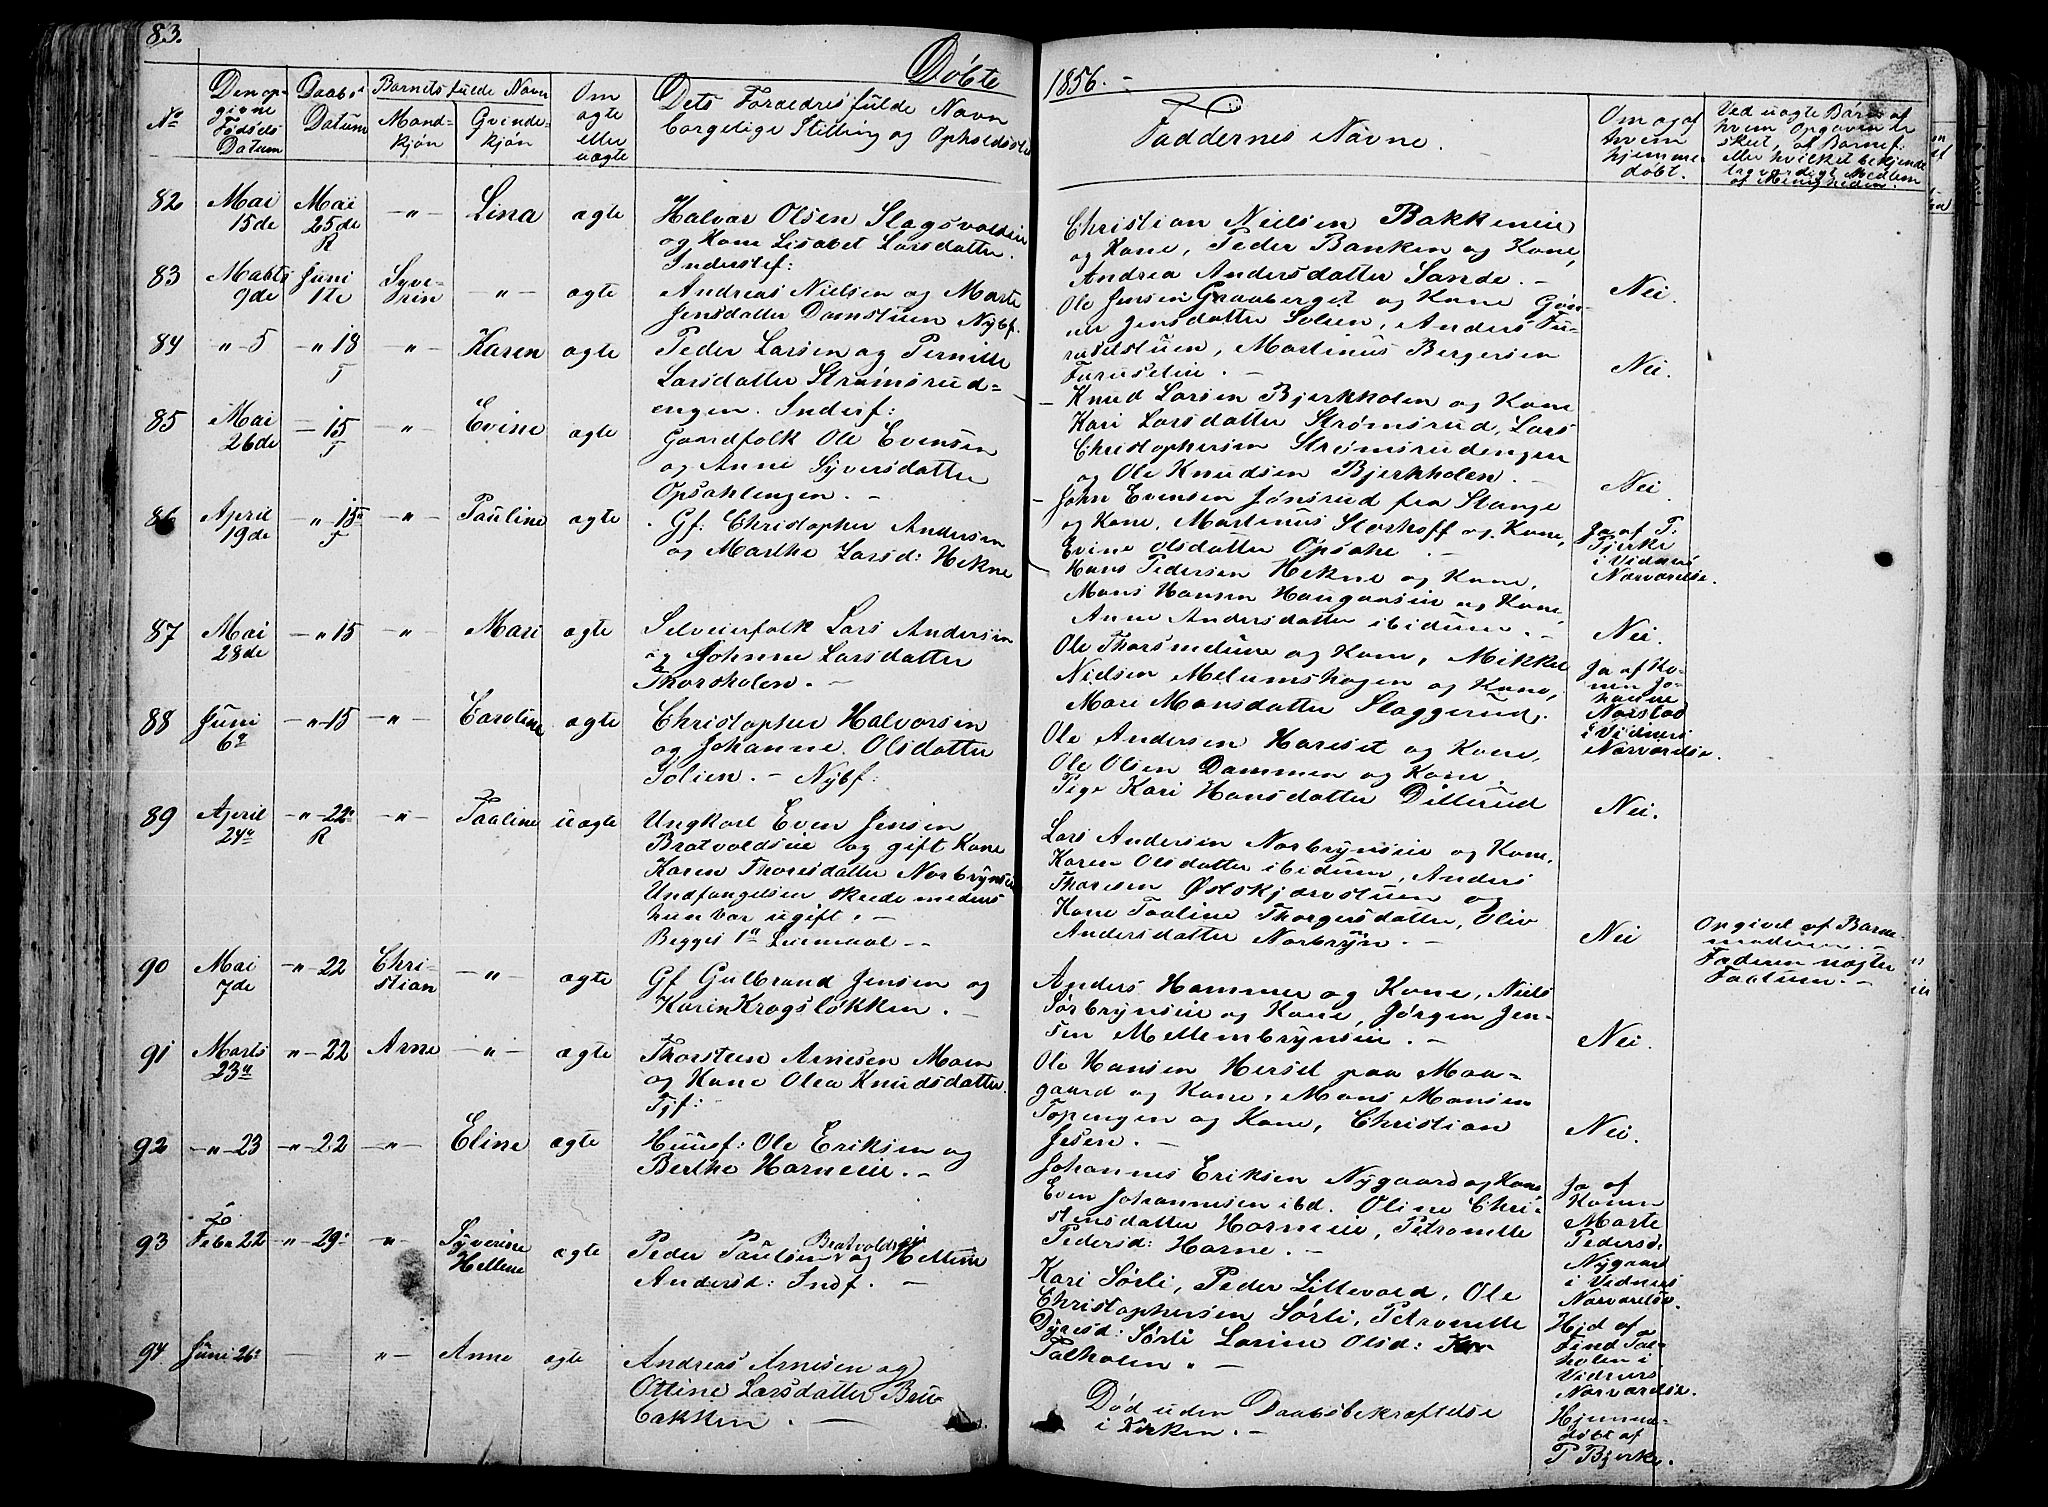 83.
Döbte
1856. -
No
Den op-
givne
Födsels
Datum
Daabs-
Datum
Barnets fulde Navn
Mand-
kjön
Qvinde-
kjön
Om
ægte
eller
uægte
Dets Forældres fulde Navn
borgelige Stilling og Opholdsst
Faddernes Navne.
Om og af
hvem
hjemme-
döbt.
Ved uægte Börn af
hvem Opgaven er
skeet, af Barnef.
eller hvilket bekjendt
troværdigt Medlem
af Menigheden.
82 Mai 15de
Mai 25de R
-"- Lina ægte
Halvor Olsen Slagsvoldeie
og Kone Lisabet Larsdatter.
Inderstef:
Christian Nielsen Bakkeneie
og Kone, Peder Banken og Kone,
Andrea Andersdatter Sande. -
Nei.
83 Marts 9de
Juni 1te
Syve-
rin
-"- ægte
Andreas Nielsen og Marte
Jensdatter Damstuen Nybf.
Ole Jensen Graaberget og Kone Gun-
ner Jensdatter Solien, Anders Fu-
ruselstuen, Martinus Bergersen
Furuseteie. -
Nei.
84 " 5
-" 18 T
-"- Karen ægte
Peder Larsen og Pernille
Larsdatter Strömsrud=
engen. Inderf:
Knud Larsen Bjerkholen og Kone
Kari Larsdatter Strömsrud, Lars
Christophersen Strömsrudengen
og Ole Knudsen Bjerkholen. -
Nei.
85 Mai 26de
-" 15 T
-"- Evine ægte
Gaardfolk Ole Evensen
og Anne Syversdatter
Opsahlengen. -
John Evensen Jönsrud fra Stange
og Kone, Martinus Storhoff og Kone,
Evine Olsdatter Opsahl. -
86 April 19de
-" 15 T
-"- Pauline ægte
Gf: Christopher Andersen
og Marthe Larsd: Hekne
Ja af P.
Bjerke
i Vidners
Nærværelse.
Hans Pedersen Hekne og Kone,
Mons Hansen Haugaaseie og Kone,
Anne Andersdatter ibidum. -
87 Mai 28de
-" 15
-"- Mari ægte
Selveierfolk Lars Andersen
og Johnne Larsdatter
Thorsholen. -
Ole Thorsmdune og Kone, Mikkel
Nielsen Melumshagen og Kone,
Mari Monsdatter Slaggerud.
Nei.
88 Juni 6te
-"- 15
-"- Caroline ægte
Christopher Halvorsen
og Johanne Olsdatter
Solien. - Nybf:
Ja af Ko-
nen Jo-
hanne
Norstad
i Vidners
Nærværelse.
Ole Andersen Hareset og Kone,
Ole Olsen Dammen og Kone,
Pige Kari Hansdatter Dillerud
Nei.
89 April 24de
-"- 22 R
-"- Paaline uægte
Ungkarl Even Jensen
Bratvoldseie og gift Kone
Karen Thoresdatter Norbrynseie
Undfangelsen skeede medens
hun var ugift. -
Begges 1te Leiermaal -
Lars Andersen Norbrynseie og Kone,
Karen Olsdatter ibidum, Anders
Thoresen Östskjærstuen og
Kone Paaline Thorgersdatter, Oliv
Andersdatter Norbryn. -
Nei
Opgivet af Barne-
moderen. -
Faderen nægter
Factum. -
90 Mai 7de
-"- 22
Chri-
stian
-"- ægte
Gf Gulbrand Jensen og
Karen Krogslökken. -
Anders Hammer og Kone, Niels
Sörbrynseie og Kone, Jörgen Jen-
sen Mellembrynseie. -
Nei.
91 Marts 23de
"- 22
Arne
-"- ægte
Thorsteen Arnesen Moen
og Kone Olea Knudsdatter
Tjf:
Ole Hansen Herset paa Maa-
gaard og Kone, Mons Monsen
Topengen og Kone, Christian
Jesen. -
Nei.
92 -"- 23
-"- 22
-"- Eline ægte
Huusf: Ole Eriksen og
Berthe Horneeie. -
Johannes Eriksen Nygaard og Kone
Even Johannesen ibd. Oline Chri-
stensdatter Horneeie, Petronelle
Pedersd: Horne. -
Ja af
Konen
Marte
Pedersd:
Nygaard
i Vidners
Nærværelse.
93 Febr 22
-"- 29
-"- Syverine
Hellene
ægte
Peder Paulsen Bratvoldseie og Hellene
Andersd: Indf. -
Kari Sörli, Peder Lillevold, Ole
Christophersen Sörli, Petronelle
Dyresd: Sörli Lorine Olsd:
Talholen. -
Hjd af
Find Tal-
holen i
Vidners
Nærværelse.
94 Juni 26
-"- Anne ægte
Andreas Arnesen og
Ottine Larsdatter Bru-
bakken. -
Död uden Daabsbekræftelse
i Kirken. -
Hjemme-
döbt af
P Bjerke.